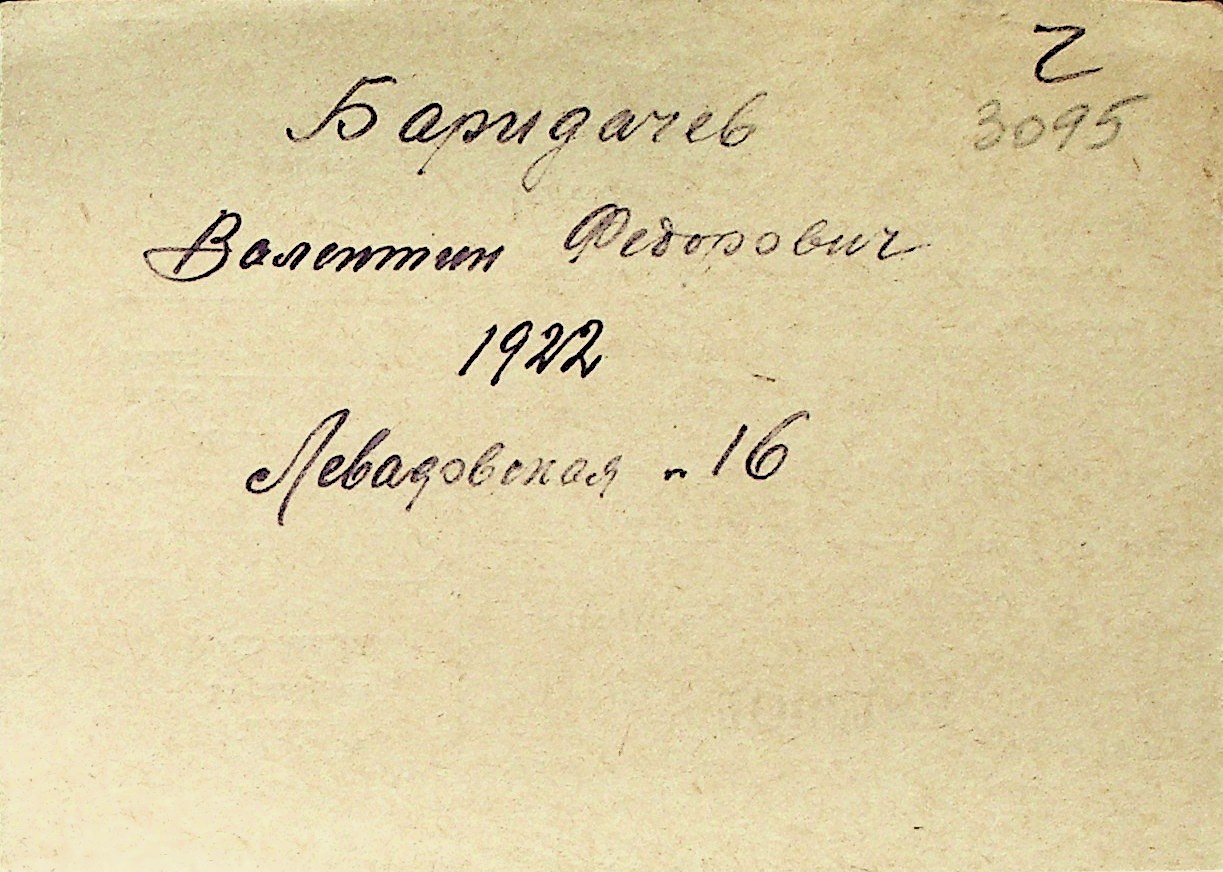 г
3095
Баридачев
Валентин Федорович
1922
Левадовская 16